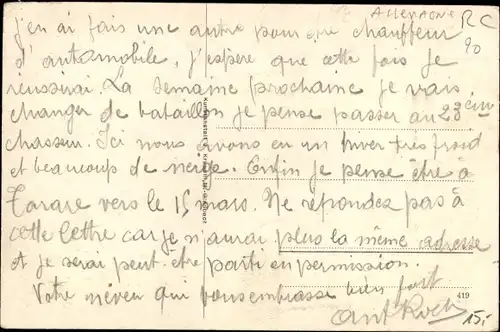 ALLEMAGNE RC
90
j'en ai fais une autre pour être chauffeur
d'automobile, j'espère que cette fois je
réussirai. La semaine prochaine je vais
changer de bataillon je pense passer au 23ème
chasseur. Ici nous avons eu un hiver très froid
et beaucoup de neige. Enfin je pense être à
Tarare vers le 15 mars. Ne repondez pas à
cette lettre car je n'aurai plus la même adresse
et je serai peut-être parti en permission.
Votre neveu qui vous embrasse bien fort
Ant Roch
419
15,-